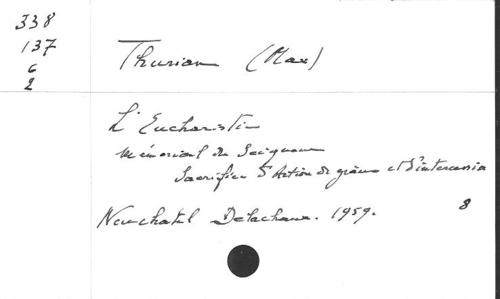 338
137
6
2
Thurian (Max)
L'Eucharistie
Mémorial du Seigneur
Sacrifice d'Action de grâces et d'intercession
Neuchatel Delachaux. 1959.
8